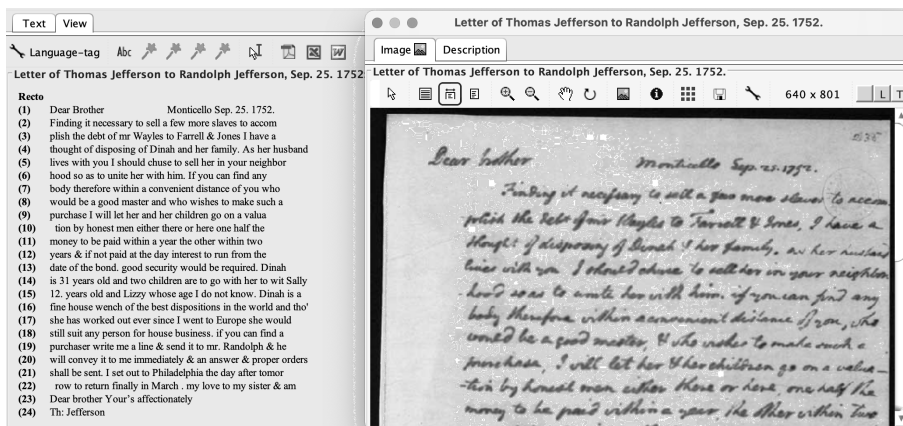 Text View
Language-tag Abc
Letter of Thomas Jefferson to Randolph Jefferson, Sep. 25. 1752
Recto
(1) Dear Brother Monticello Sep. 25. 1752.
(2) Finding it necessary to sell a few more slaves to accom
(3) plish the debt of mr Wayles to Farrell & Jones I have a
(4) thought of disposing of Dinah and her family. As her husband
(5) lives with you I should chuse to sell her in your neighbor
(6) hood so as to unite her with him. If you can find any
(7) body therefore within a convenient distance of you who
(8) would be a good master and who wishes to make such a
(9) purchase I will let her and her children go on a valua
(10) tion by honest men either there or here one half the
(11) money to be paid within a year the other within two
(12) years & if not paid at the day interest to run from the
(13) date of the bond. good security would be required. Dinah
(14) is 31 years old and two children are to go with her to wit Sally
(15) 12. years old and Lizzy whose age I do not know. Dinah is a
(16) fine house wench of the best dispositions in the world and tho'
(17) she has worked out ever since I went to Europe she would
(8) still suit any person for house business. if you can find a
(19) purchaser write me a line & send it to mr. Randolph & he
(20) will convey it to me immediately & an answer & proper orders
(21) shall be sent. I set out to Philadelphia the day after tomor
(22) row to return finally in March . my love to my sister & am
(23) Dear brother Your's affectionately
(24) Th: Jefferson
Letter of Thomas Jefferson to Randolph Jefferson, Sep. 25. 1752.
Image Description
Letter of Thomas Jefferson to Randolph Jefferson, Sep. 25. 1752.
640 x 801 L T
Dear brother Monticello Sep. 25. 1752.
Finding it necessary to sell a few more slaves to accom
plish the debt of mr Wayles to Farrell & Jones, I have a
thought of disposing of Dinah & her family. as her husband
lives with you I should chuse to sell her in your neighbor
-hood so as to unite her with him. if you can find any
body therefore within a convenient distance of you, who
would be a good master, & who wishes to make such a
purchase, I will let her & her children go on a valua-
-tion by honest men either there or here, one half the
money to be paid within a year, the other within two